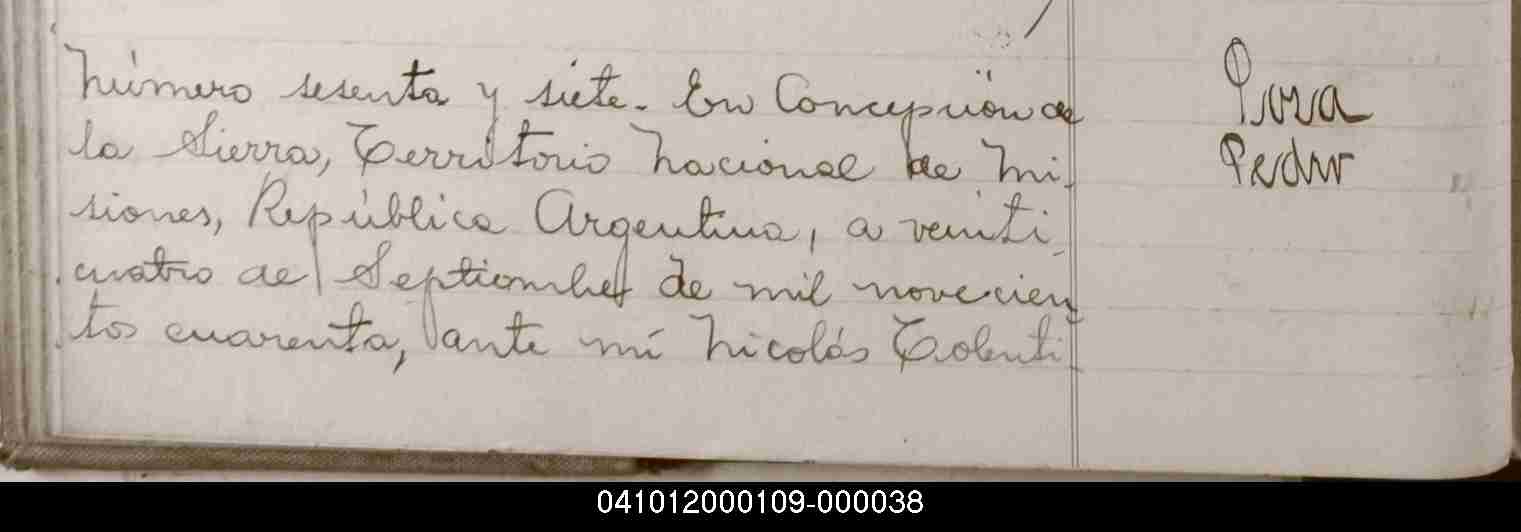 Número sesenta y siete. En Concepción de
la Sierra, Territorio Nacional de Mi-
siones, República Argentina, a veinti-
cuatro de Septiembre de mil novecien-
tos cuarenta, ante mí Nicolás Tolenti-
Pedro
041012000109-000038